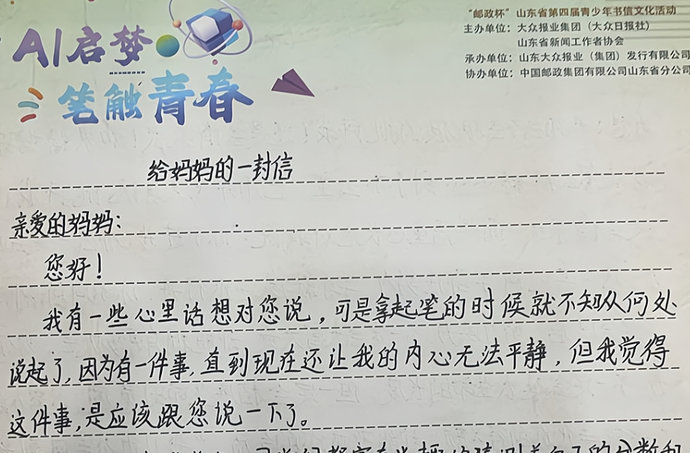 AI启梦
笔触青春
“邮政杯”山东省第四届青少年书信文化活动
主办单位：大众报业集团（大众日报社）
山东省新闻工作者协会
承办单位：山东大众报业（集团）发行有限公司
协办单位：中国邮政集团有限公司山东省分公司
给妈妈的一封信
亲爱的妈妈：
您好！
我有一些心里话想对您说，可是拿起笔的时候就不知从何处
说起了，因为有一件事，直到现在还让我的内心无法平静，但我觉得
这件事，是应该跟您说一下了。